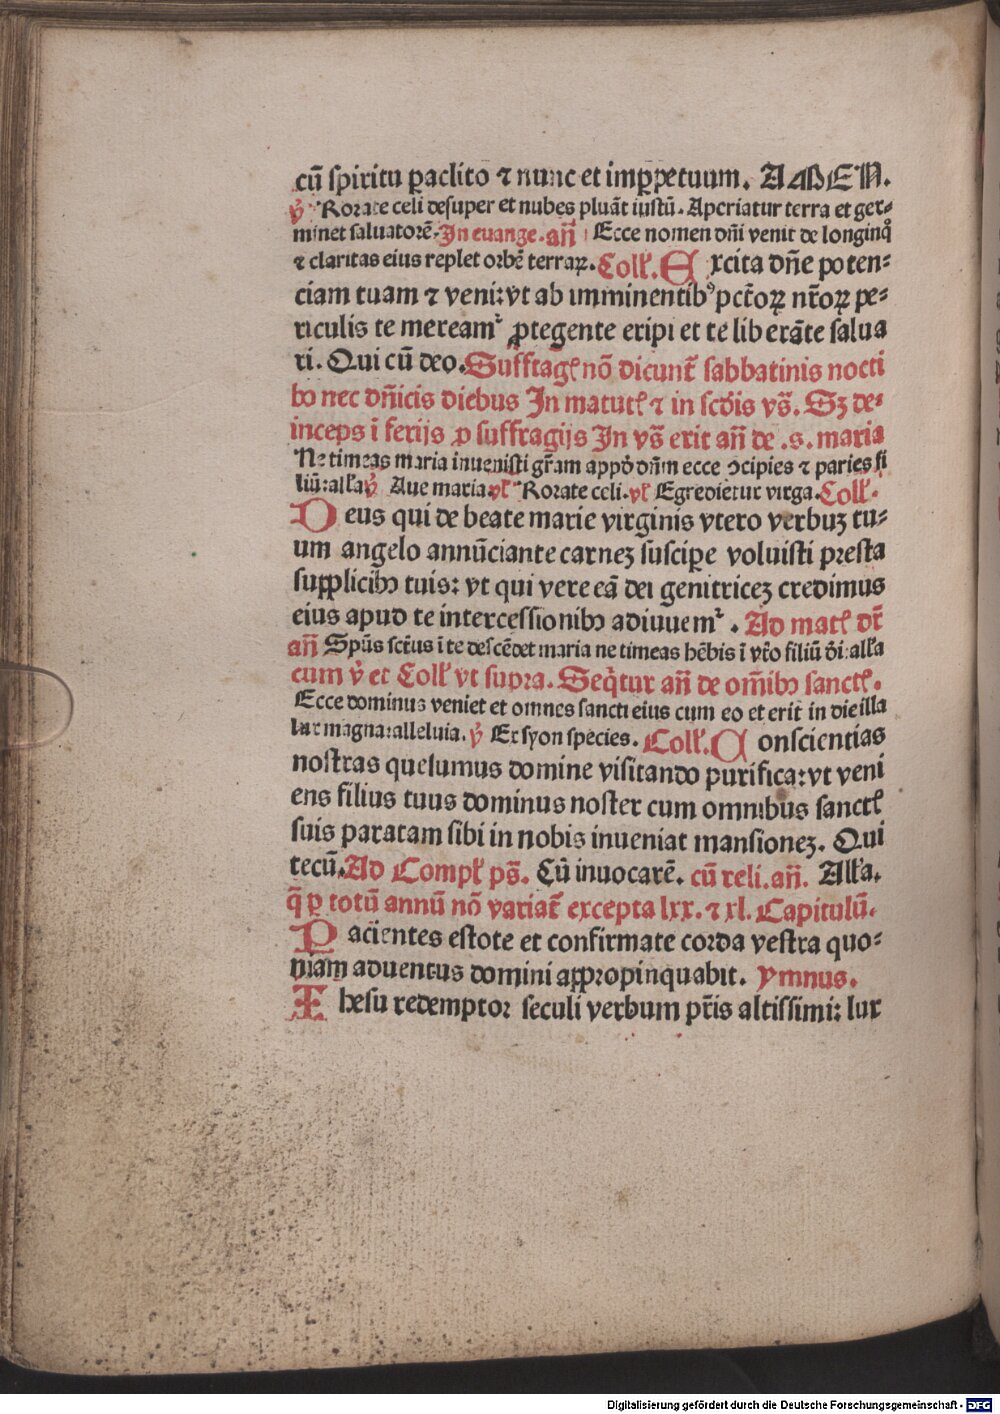 cū spiritu ꝑaclito ⁊ nunc et imꝑpetuum. AMEN.
℣ Rorate celi desuper et nubes pluāt iustū. Aperiatur terra et ger⸗
minet saluatorē. In euange. an̄ Ecce nomen dn̄i venit de longinq̊
⁊ claritas eius replet orbē terraꝝ. Coll̄. Excita dn̄e poten⸗
ciam tuam ⁊ veni: vt ab imminentibꝰ pctōꝝ nr̄oꝝ pe⸗
riculis te mereamᷣ ꝓtegente eripi et te liberāte salua
ri. Qui cū deo. Suffrag̃ nō dicunt᷑ sabbatinis nocti
bꝫ nec dn̄icis diebus In matut̃ ⁊ in scd̄is vs̄. Sꝫ de⸗
inceps ī ferijs ꝓ suffragijs In vs̄ erit an̄ de .s. maria
Ne timeas maria inuenisti gr̄am apꝓd̄ dn̄m ecce ꝯcipies ⁊ paries fi
liū: all̄a ℣ Aue maria. vl̄ Rorate celi. vl̄ Egredietur virga. Coll̄.
Deus qui de beate marie virginis vtero verbuꝫ tu⸗
um angelo annūciante carneꝫ suscipe voluisti presta
supplicibꝫ tuis: vt qui vere eā dei genitriceꝫ credimus
eius apud te intercessionibꝫ adiuuemᷣ . Ad mat̃ dr̄
an̄ Spūs sct̄us ī te descēdet maria ne timeas hēbis ī vt̄o filiū dī: all̄a
cum ℣ et Coll̄ vt supra. Seq̄tur an̄ de om̄ibꝫ sanct̃.
Ecce dominus veniet et omnes sancti eius cum eo et erit in die illa
lux magna: alleluia. ℣ Ex syon species. Coll̄. Conscientias
nostras quesumus domine visitando purifica: vt veni
ens filius tuus dominus noster cum omnibus sanct̃
suis paratam sibi in nobis inueniat mansioneꝫ. Qui
tecū. Ad Compl̄ ps̄. Cū inuocarē. cū reli. an̄. All̄a.
q̄ ꝑ totū annū nō variat᷑ excepta lxx. ⁊ xl. Capitulū.
Pacientes estote et confirmate corda vestra quo⸗
niam aduentus domini appropinquabit. ymnus.
Ihesu redemptor seculi verbum pr̄is altissimi: lux
Digitalisierung gefördert durch die Deutsche Forschungsgemeinschaft - DFG